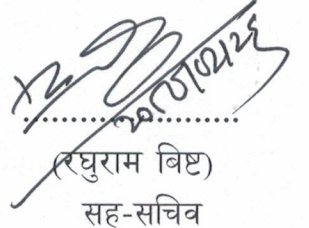 (रघुराम बिष्ट)
सह-सचिव